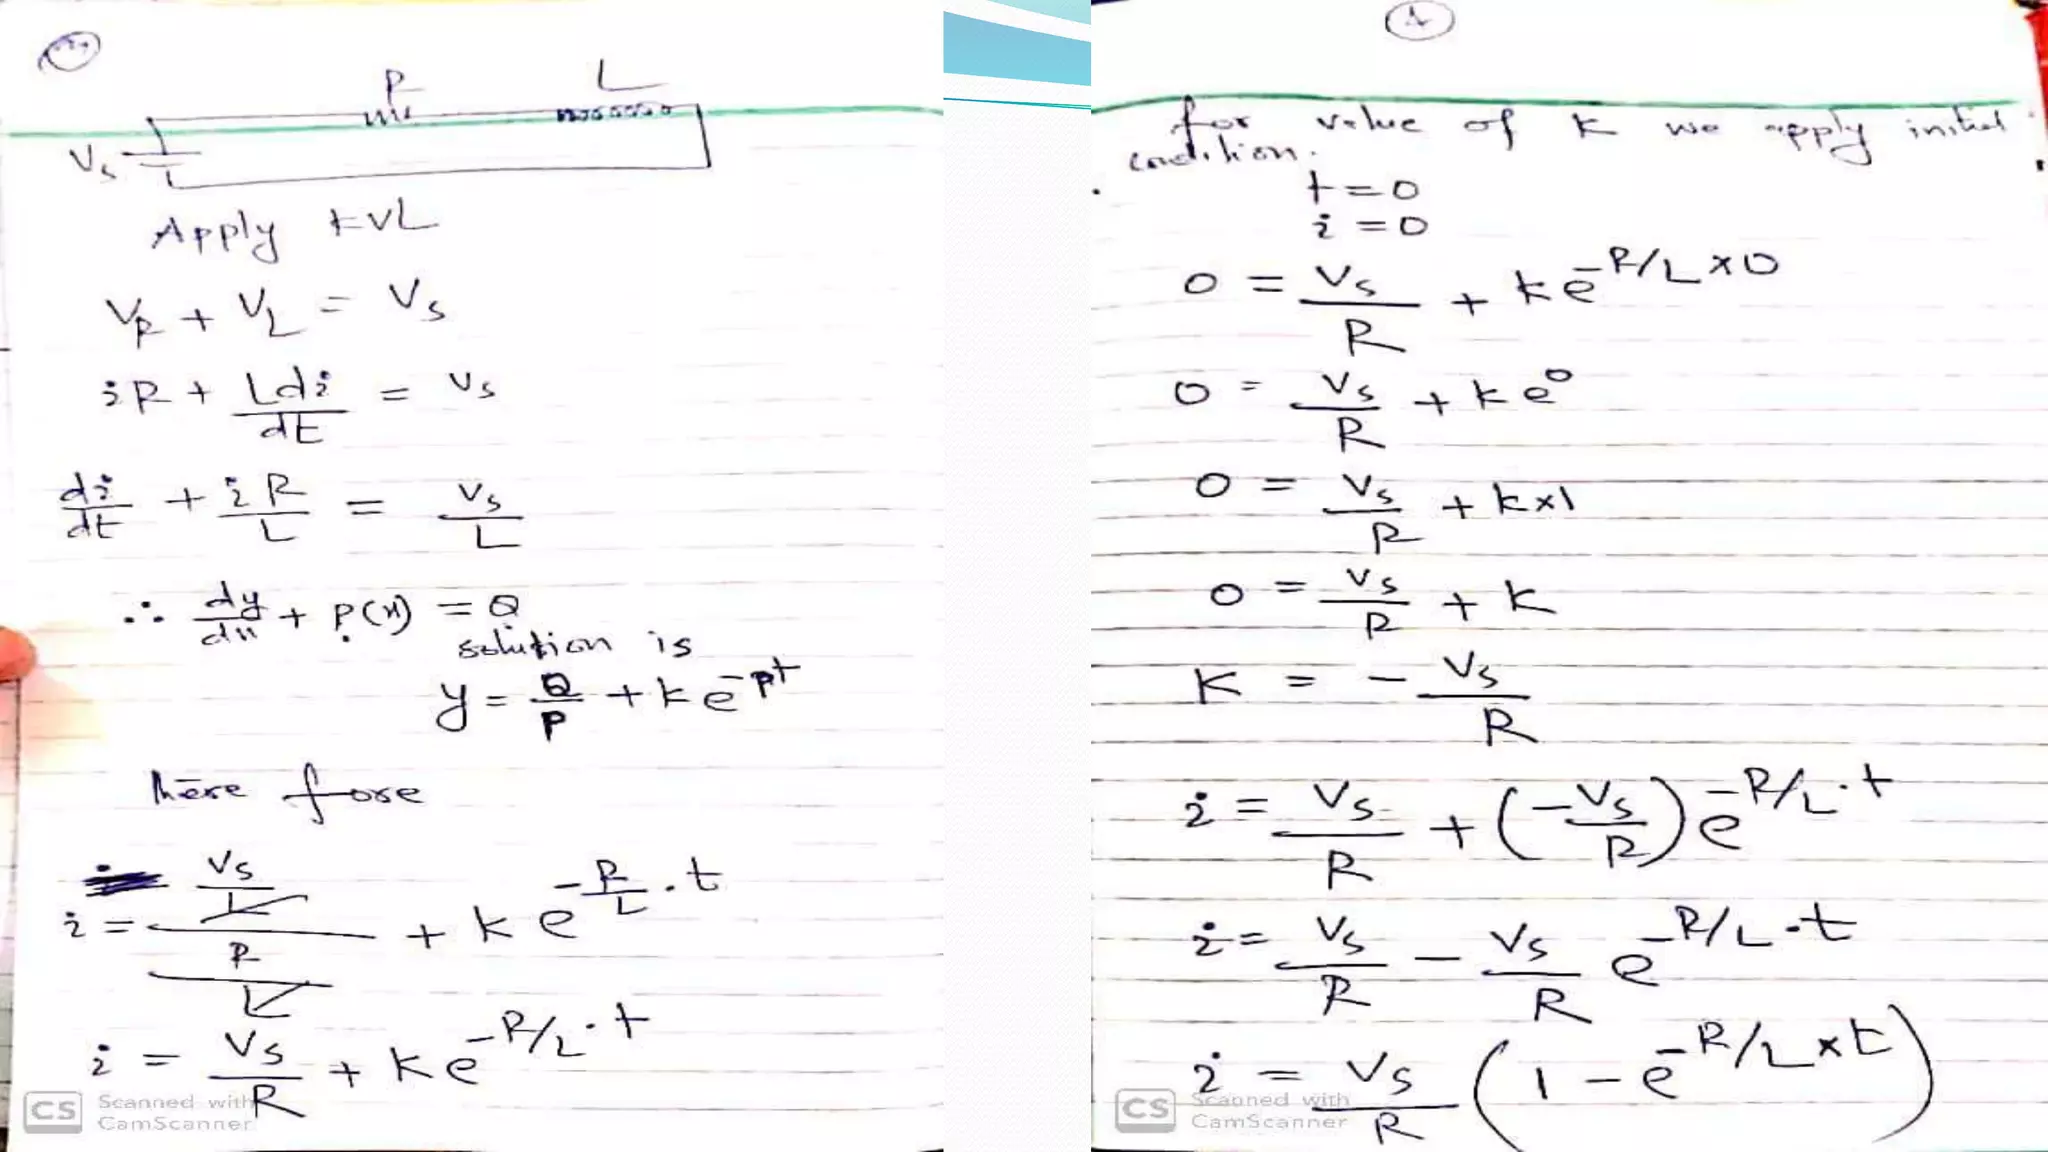 R L
Vs
Apply KVL
VR + VL = Vs
iR + Ldi/dt = Vs
di/dt + iR/L = Vs/L
∴ dy/dx + P(x) = Q
solution is
y = Q/P + ke^-Pt
here fore
i = (Vs/L)/(R/L) + ke^-R/L.t
i = Vs/R + ke^-R/L.t
CS Scanned with
CamScanner
for value of K we apply initial
condition.
t = 0
i = 0
0 = Vs/R + ke^-R/L×0
0 = Vs/R + ke^0
0 = Vs/R + k×1
0 = Vs/R + K
K = -Vs/R
i = Vs/R + (-Vs/R)e^-R/L.t
i = Vs/R - Vs/R e^-R/L.t
i = Vs/R (1 - e^-R/L×t)
CS Scanned with
CamScanner